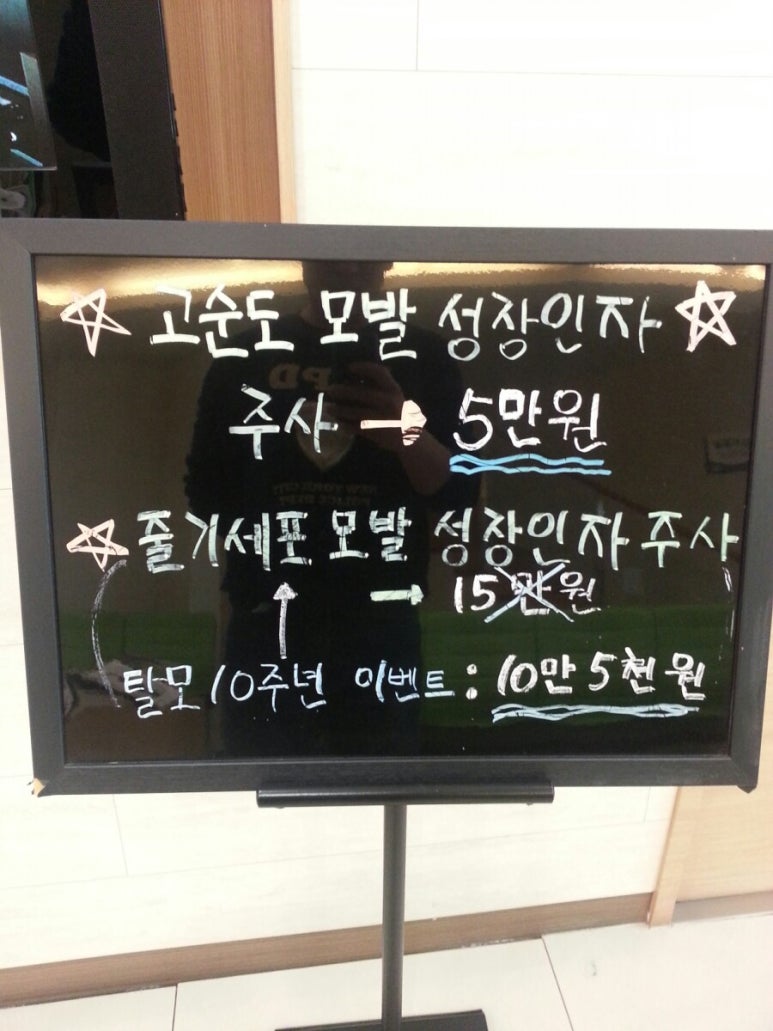 ☆ 고순도 모발 성장인자 ☆
주사 → 5만원
☆ 줄기세포 모발 성장인자 주사
→ 15만원
탈모 10주년 이벤트 : 10만 5천원